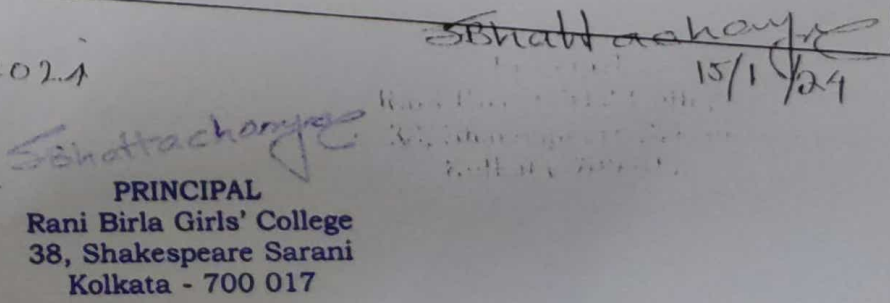 SBhattacharyya
15/1/24
021
SBhattacharyya
PRINCIPAL
Rani Birla Girls' College
38, Shakespeare Sarani
Kolkata - 700 017